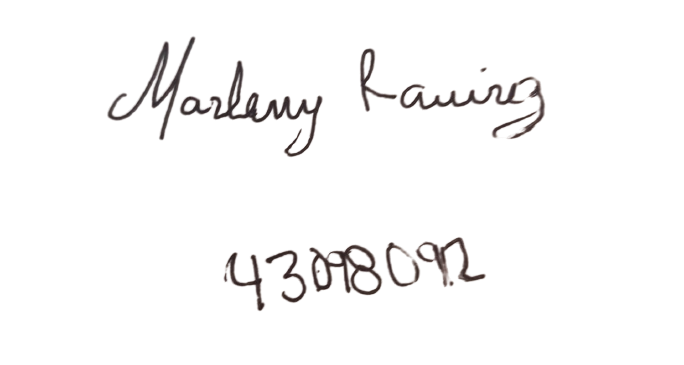 Marleny Ramirez
43098092